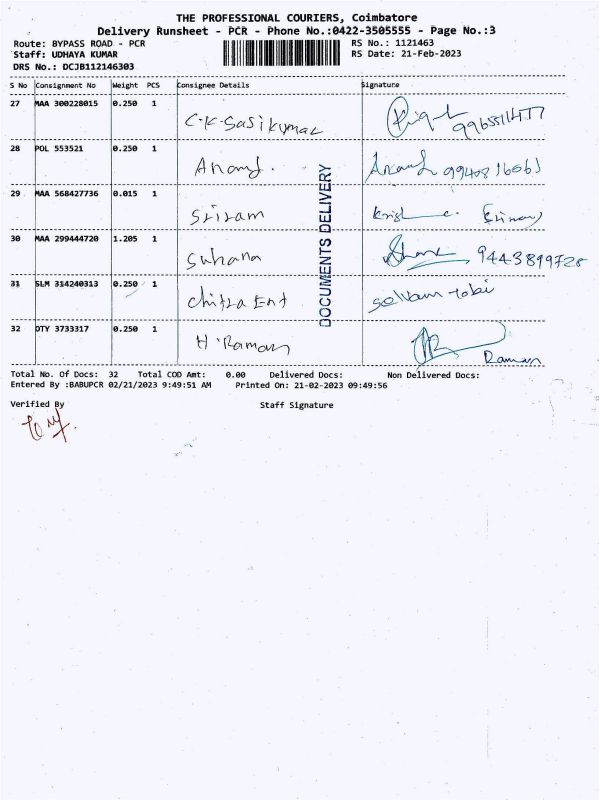 THE PROFESSIONAL COURIERS, Coimbatore
Delivery Runsheet - PCR - Phone No.:0422-3505555 - Page No.:3
Route: BYPASS ROAD - PCR RS No.: 1121463
Staff: UDHAYA KUMAR RS Date: 21-Feb-2023
DRS No.: DCJB112146303
S No Consignment No Weight PCS Consignee Details Signature
27 MAA 300228015 0.250 1 C.K-Sasikumar
28 POL 553521 0.250 1 Anand. Anand
29 MAA 568427736 0.015 1 Sriram
30 MAA 299444720 1.205 1 Suhana 9443899728
31 SLM 314240313 0.250 1 Chitra Ent
32 DTY 3733317 0.250 1 H. Raman Raman
DOCUMENTS DELIVERY
Total No. Of Docs: 32 Total COD Amt: 0.00 Delivered Docs: Non Delivered Docs:
Entered By :BABUPCR 02/21/2023 9:49:51 AM Printed On: 21-02-2023 09:49:56
Verified By Staff Signature